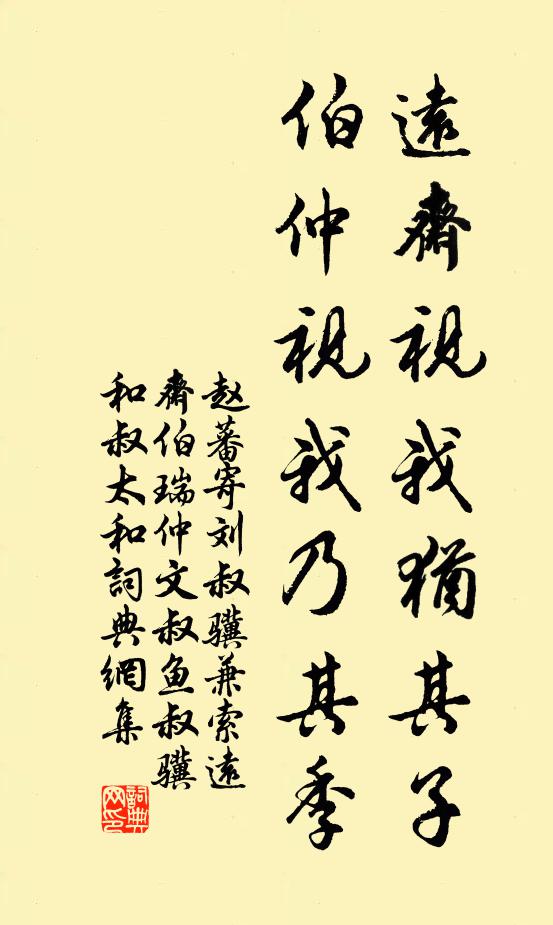 遠齋視我猶其子
伯仲視我乃其季
赵蕃寄刘叔骥兼索遠
齋伯瑞仲文叔鱼叔骥
和叔太和詞典網集
詞典网印